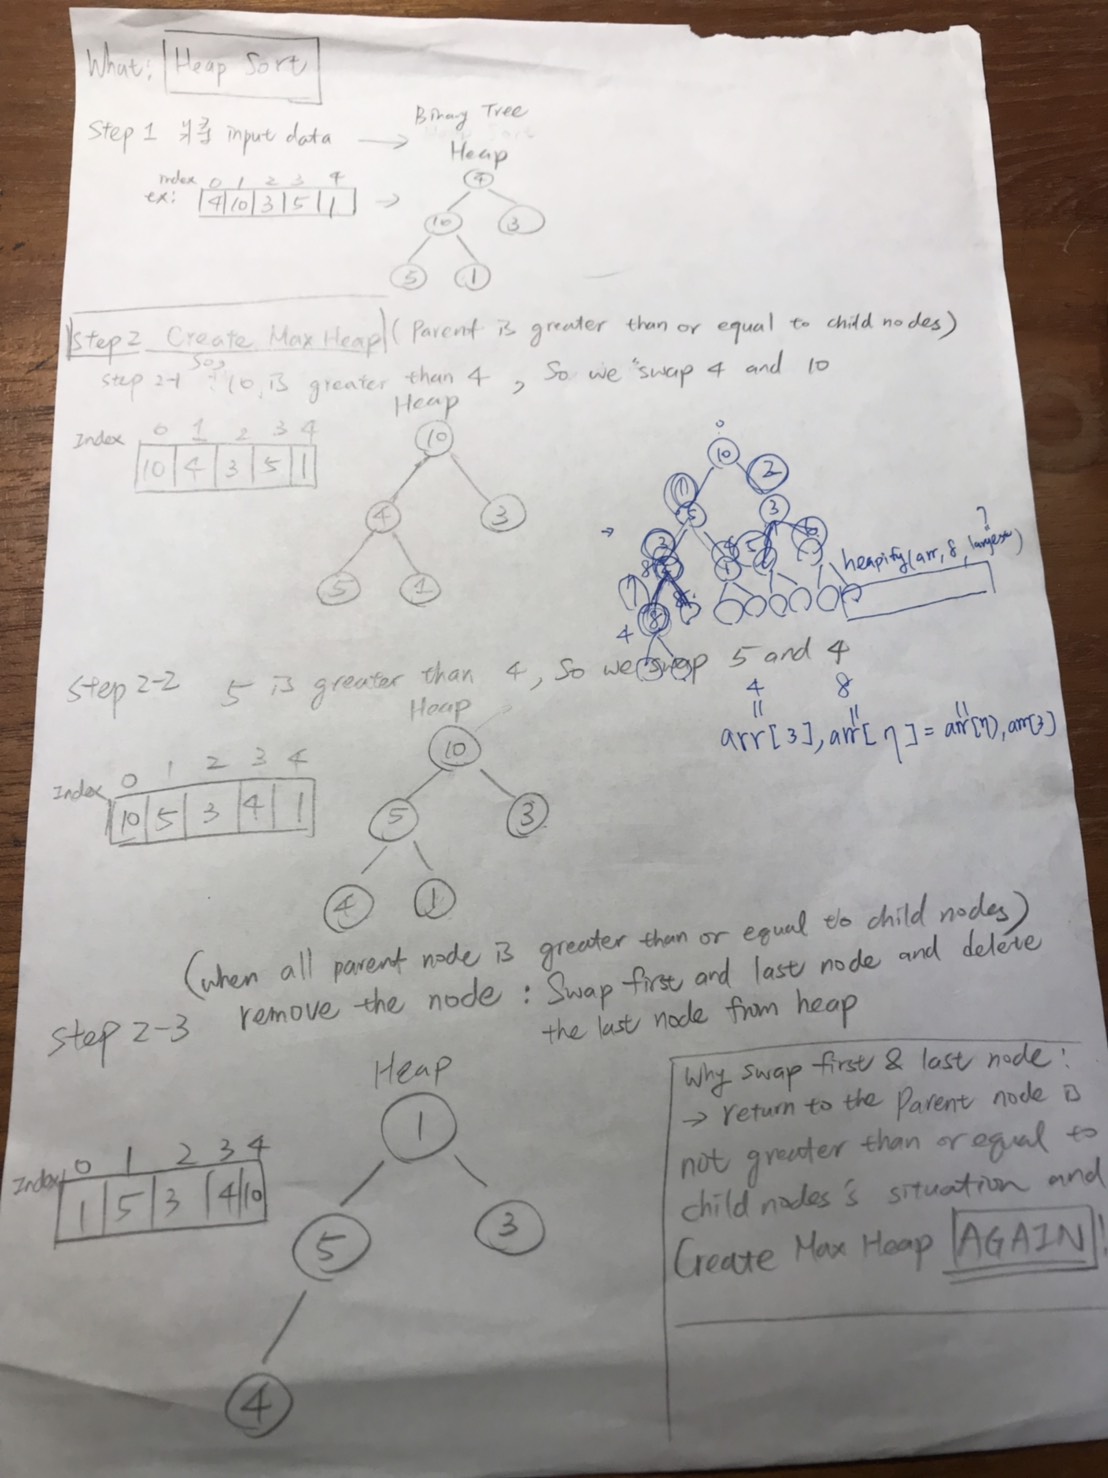 What: Heap Sort
Step 1 將 input data → Binary Tree
Heap
index 0 1 2 3 4
ex: 4 10 3 5 1 →
4
10 3
5 1
Step 2 Create Max Heap (Parent is greater than or equal to child nodes)
So,
Step 2-1 : 10 is greater than 4, So we swap 4 and 10
Heap
Index 0 1 2 3 4
10 4 3 5 1
10
4 3
5 1
0
10
2
3
heapify(arr, 8, largest)
7
4
Step 2-2 5 is greater than 4, So we swap 5 and 4
4 8
arr[3], arr[7] = arr[7], arr[3]
Heap
Index 0 1 2 3 4
10 5 3 4 1
10
5 3
4 1
(when all parent node is greater than or equal to child nodes)
Step 2-3 remove the node : Swap first and last node and delete
the last node from heap
Heap
Index 0 1 2 3 4
1 5 3 4 10
1
5 3
4
Why swap first & last node:
→ return to the Parent node is
not greater than or equal to
child nodes's situation and
Create Max Heap AGAIN!